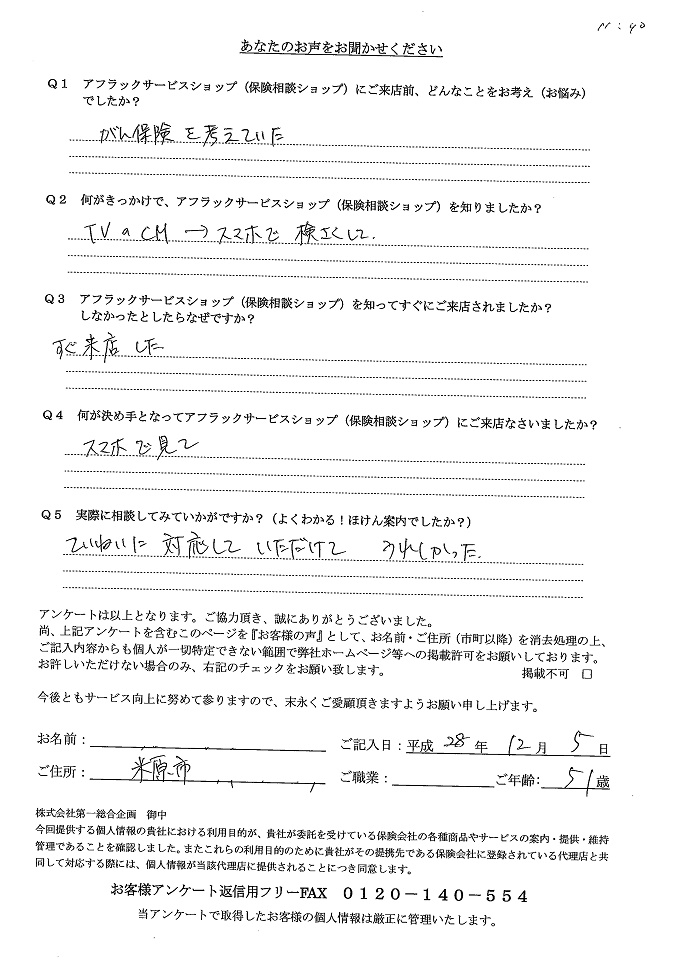 11:40
あなたのお声をお聞かせください
Q1 アフラックサービスショップ(保険相談ショップ)にご来店前、どんなことをお考え(お悩み)
でしたか?
がん保険を考えていた
Q2 何がきっかけで、アフラックサービスショップ(保険相談ショップ)を知りましたか?
TVのCM→スマホで検さくして.
Q3 アフラックサービスショップ(保険相談ショップ)を知ってすぐにご来店されましたか?
しなかったとしたらなぜですか?
すぐ来店した
Q4 何が決め手となってアフラックサービスショップ(保険相談ショップ)にご来店なさいましたか?
スマホで見て
Q5 実際に相談してみていかがですか?(よくわかる!ほけん案内でしたか?)
ていねいに対応していただけて うれしかった.
アンケートは以上となります。ご協力頂き、誠にありがとうございました。
尚、上記アンケートを含むこのページを『お客様の声』として、お名前・ご住所(市町以降)を消去処理の上、
ご記入内容からも個人が一切特定できない範囲で弊社ホームページ等への掲載許可をお願いしております。
お許しいただけない場合のみ、右記のチェックをお願い致します。 掲載不可 □
今後ともサービス向上に努めて参りますので、末永くご愛顧頂きますようお願い申し上げます。
お名前: ご記入日:平成 28 年 12 月 5 日
ご住所: 米原市 ご職業: ご年齢: 51 歳
株式会社第一総合企画 御中
今回提供する個人情報の貴社における利用目的が、貴社が委託を受けている保険会社の各種商品やサービスの案内・提供・維持
管理であることを確認しました。またこれらの利用目的のために貴社がその提携先である保険会社に登録されている代理店と共
同して対応する際には、個人情報が当該代理店に提供されることにつき同意します。
お客様アンケート返信用フリーFAX 0120-140-554
当アンケートで取得したお客様の個人情報は厳正に管理いたします。